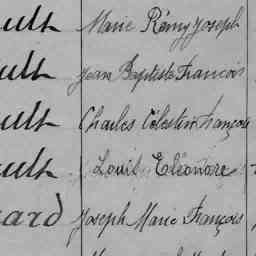 ult Marie Rémy Joseph
ult Jean Baptiste Francois
ult Charles Célestin François
ult Louis Eléonore
ard Joseph Marie François